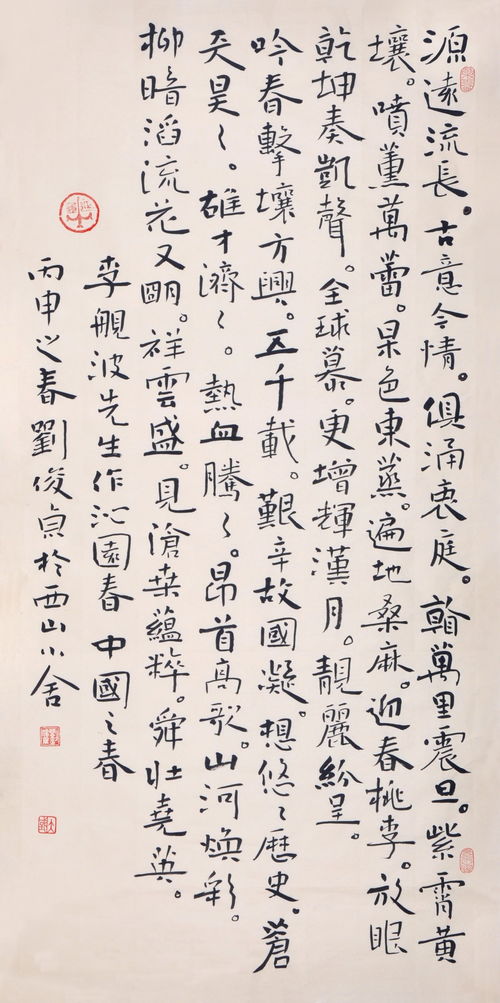 源遠流長。古意今情。俱涌衷庭。翰萬里震旦。紫霄黃
壤。噴薰萬蕾。杲色東蒸。遍地桑麻。迎春桃李。放眼
乾坤奏凱聲。全球慕。更增輝漢月。靚麗紛呈。
吟春擊壤方興。五千載。艱辛故國凝。想悠〻歷史。蒼
天昊〻。雄才濟〻。熱血騰〻。昂首高歌。山河煥彩。
柳暗滔流花又朙。祥雲盛。見滄桒蘊粹。舜壯堯英。
李舰波先生作沁園春 中國之春
丙申之春劉俊貞於西山小舍